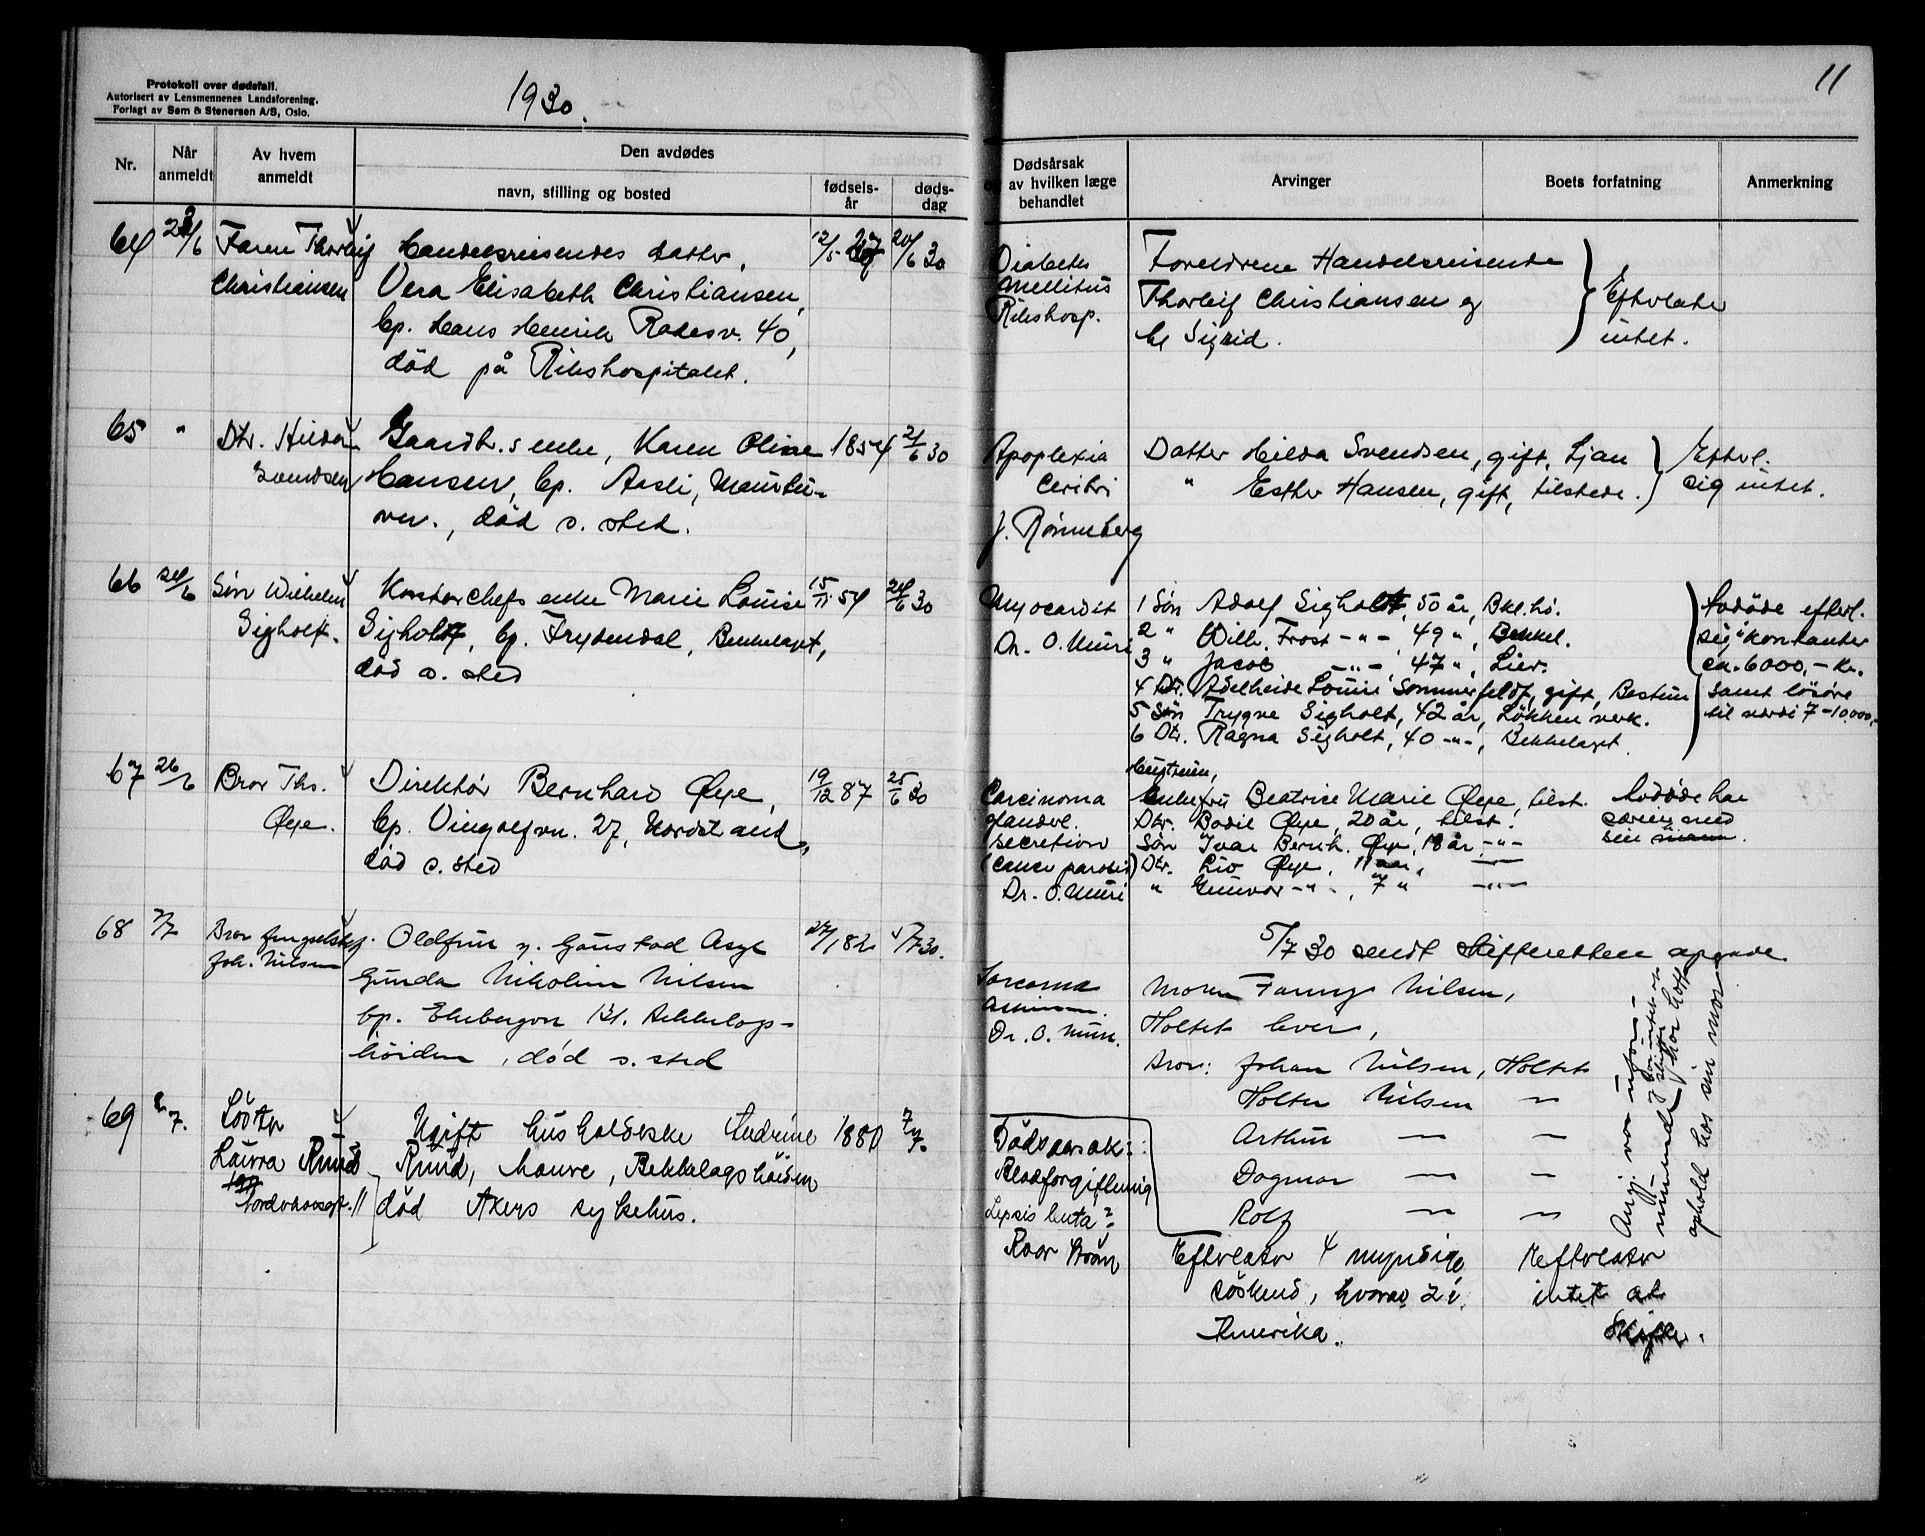 Protokoll over dødsfall.
Autorisert av Lensmennenes Landsforening.
Forlagt av Sem & Stenersen A/S, Oslo.
1930.
Nr.
Når anmeldt
Av hvem anmeldt
Den avdødes
navn, stilling og bosted
fødsels-år
døds-dag
64 23/6 Faren Thorleif
Christiansen
Handelsreisendes datter,
Vera Elisabeth Christiansen,
bp. Hans Henrik Rodesv. 40,
död på Rikshospitalet.
12/5-27 20/6 30
65 " Dtr. Hilda
Svendsen
Gaardbr.s enke, Karen Oline
Hansen, bp. Aasli,
død s. sted.
1854 21/6 30
66 24/6 Sön Wilhelm
Sigholt.
Kontorchefs enke Marie Louise
Sigholt, bp. Frydendal, Bekkelaget,
död s. sted
15/11 54 24/6 30
67 26/6 Bror Ths.
Øye.
Direktör Bernhard Øye,
bp. Vingolfvn. 27, Nordstrand,
död s. sted
19/12 87 25/6 30
68 2/7 Bror
Joh. Nilsen
Oldfrue v. Gaustad Asyl
Gunda Nikoline Nilsen
bp. Ekebergvn 131. Bekkelags-
höiden, död s. sted
27/1 82 1/7 30.
69 8/7. Söster
Laura Ruud
Ugift husholderske Andrine
Ruud, Bekkelagshöiden
död Akers sykehus.
1880 7/7.
11
Dødsårsak
av hvilken læge
behandlet
Arvinger
Boets forfatning
Anmerkning
Diabetes
mellitus
Rikshosp.
Foreldrene Handelsreisende
Thorleif Christiansen og
h. Sigrid.
Efterlater
intet.
Apoplexia
cerebri
J. Rönneberg
Datter Hilda Svendsen, gift, Ljan
" Esther Hansen, gift, tilstede.
Efterl.
sig intet.
Myocardit
Dr. O. Muri
1 Sön Adolf Sigholt, 50 år, Bkl.hö.
2 " Wilh. Frost -"-, 49 ", Bekkel.
3 " Jacob -"-, 47 ", Lier.
4 Dtr. Adelheide Louise Sommerfeldt, gift, Bestum
5 Sön Trygve Sigholt, 42 år, Løkken verk.
6 Dtr. Ragna Sigholt, 40 -"-, Bekkelaget.
Avdöde efterl.
sig i kontanter
ca. 6000,- kr.
samt lösöre
til verdi 7-10.000,-
Carcinoma
glandul.
secretion
(cancer parotis)
Dr. O. Muri
Hustruen,
Enkefru Beatrice Marie Øye, tilst.
Dtr. Bodil Øye, 20 år, tilst.
Sön Ivar Bernh. Øye, 18 år, -"-
Dtr. Liv Øye, 11 år, -"-
" Gunvor -"-, 7 " -"-
Avdöde har
særeie med
sin mann.
5/7 30 sendt skifteretten opgave
Sarcoma
Dr. O. Muri.
Moren Fanny Nilsen,
Holtet lever,
Bror: Johan Nilsen, Holtet
Holter Nilsen "
Arthur — —
Dagmar — —
Rolf — —
sin mor
Dödsaarsak:
Blodforgiftning
Sepsis lenta?
Roar Ström
Efterlater 4 myndige
söskend, hvorav 2 i
Amerika.
Efterlater
intet at
skifte.